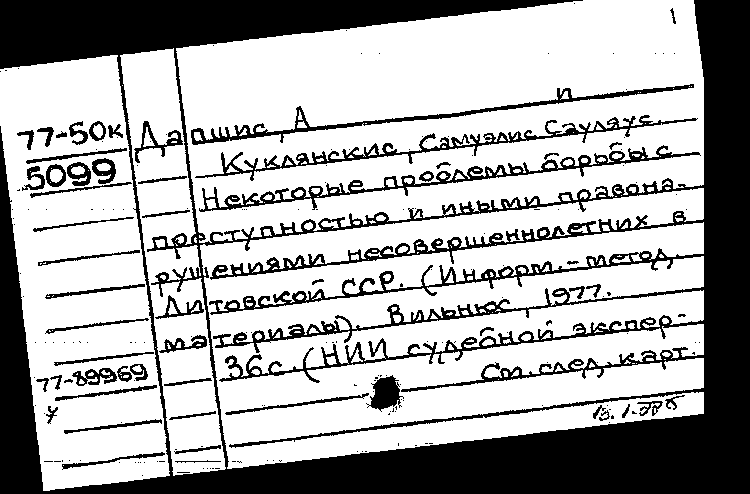 1
77-50к
5099
Дапшис, А
п
Куклянскис, Самуэлис Сауляус.
Некоторые проблемы борьбы с
преступностью и иными правона-
рушениями несовершеннолетних в
Литовской ССР. (Информ.-метод.
материалы). Вильнюс, 1977.
36с. (НИИ судебной экспер-
См. след. карт.
77-89969